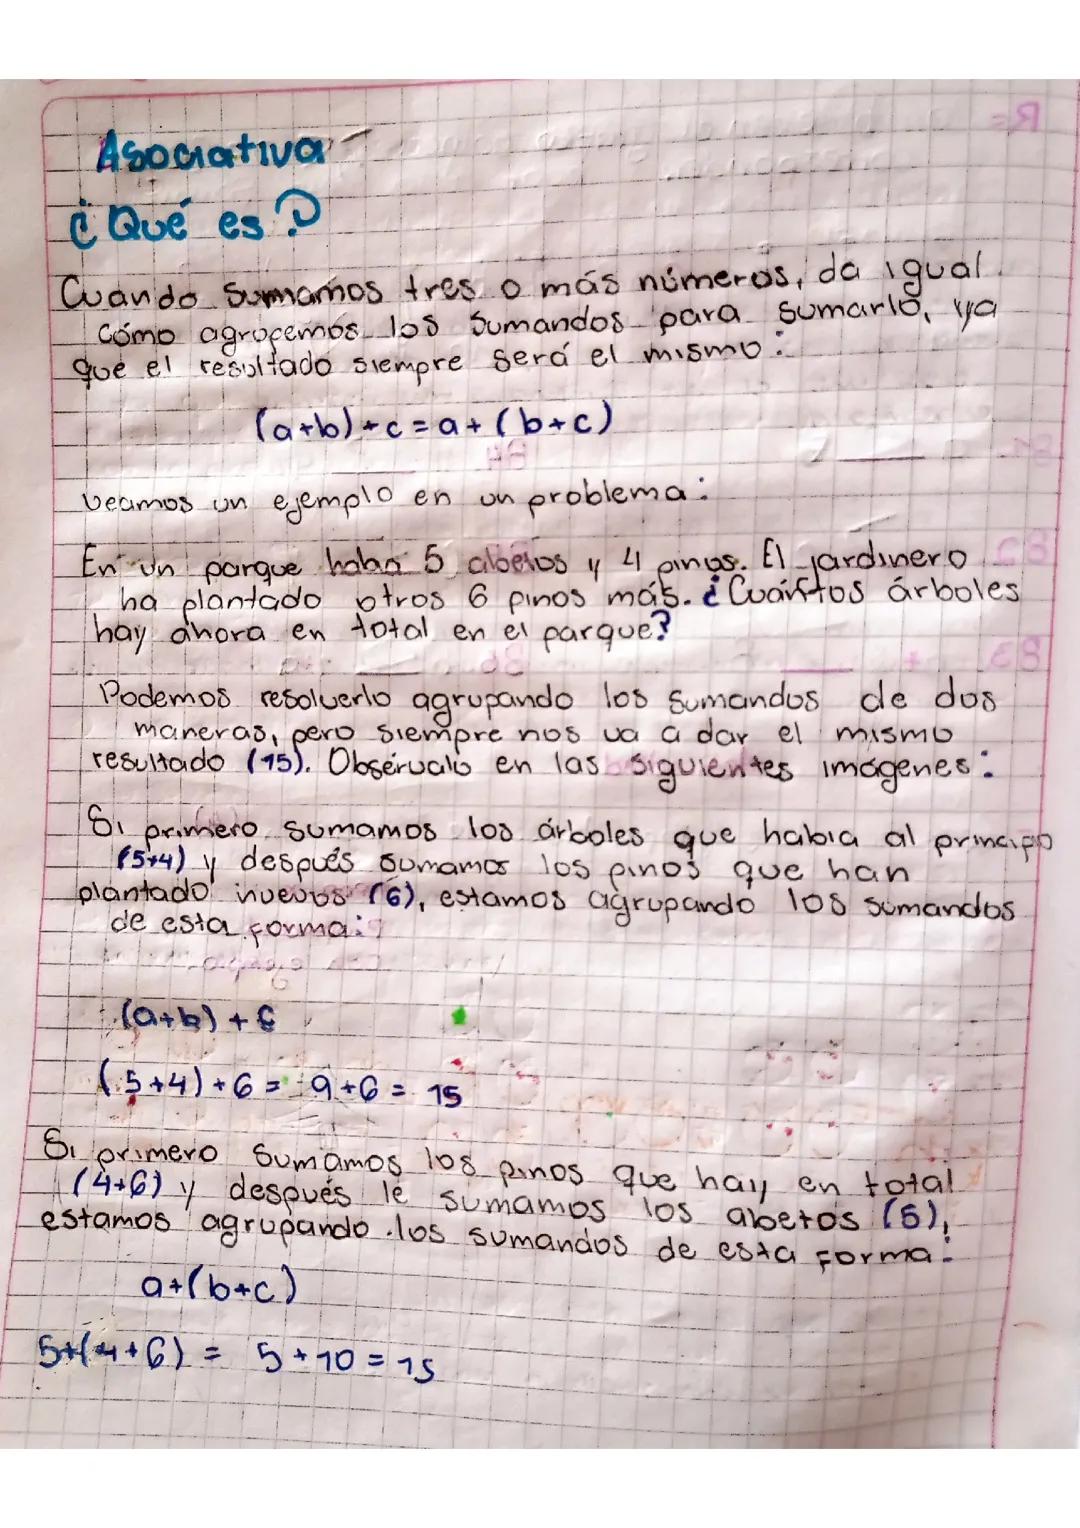 Asociativa
¿Qué es?
Cuando sumamos tres o más números, da igual
cómo agrupemos los sumandos para sumarlo, ya
que el resultado siempre será el mismo:
(a+b)+c=a+(b+c)
Veamos un ejemplo en un problema:
En un parque había 5 abetos y 4 pinos. El jardinero
ha plantado otros 6 pinos más. ¿Cuántos árboles
hay ahora en total en el parque?
Podemos resolverlo agrupando los sumandos de dos
maneras, pero siempre nos va a dar el mismo
resultado (15). Obsérvalo en las siguientes imágenes:
Si primero sumamos los árboles que había al principio
(5+4) y después sumamos los pinos que han
plantado nuevos (6), estamos agrupando los sumandos
de esta forma:
(a+b)+c
(5+4)+6= 9+6= 15
Si primero sumamos los pinos que hay en total
(4+6) y después le sumamos los abetos (5),
estamos agrupando los sumandos de esta forma:
a+(b+c)
5+(4+6) = 5+10=15